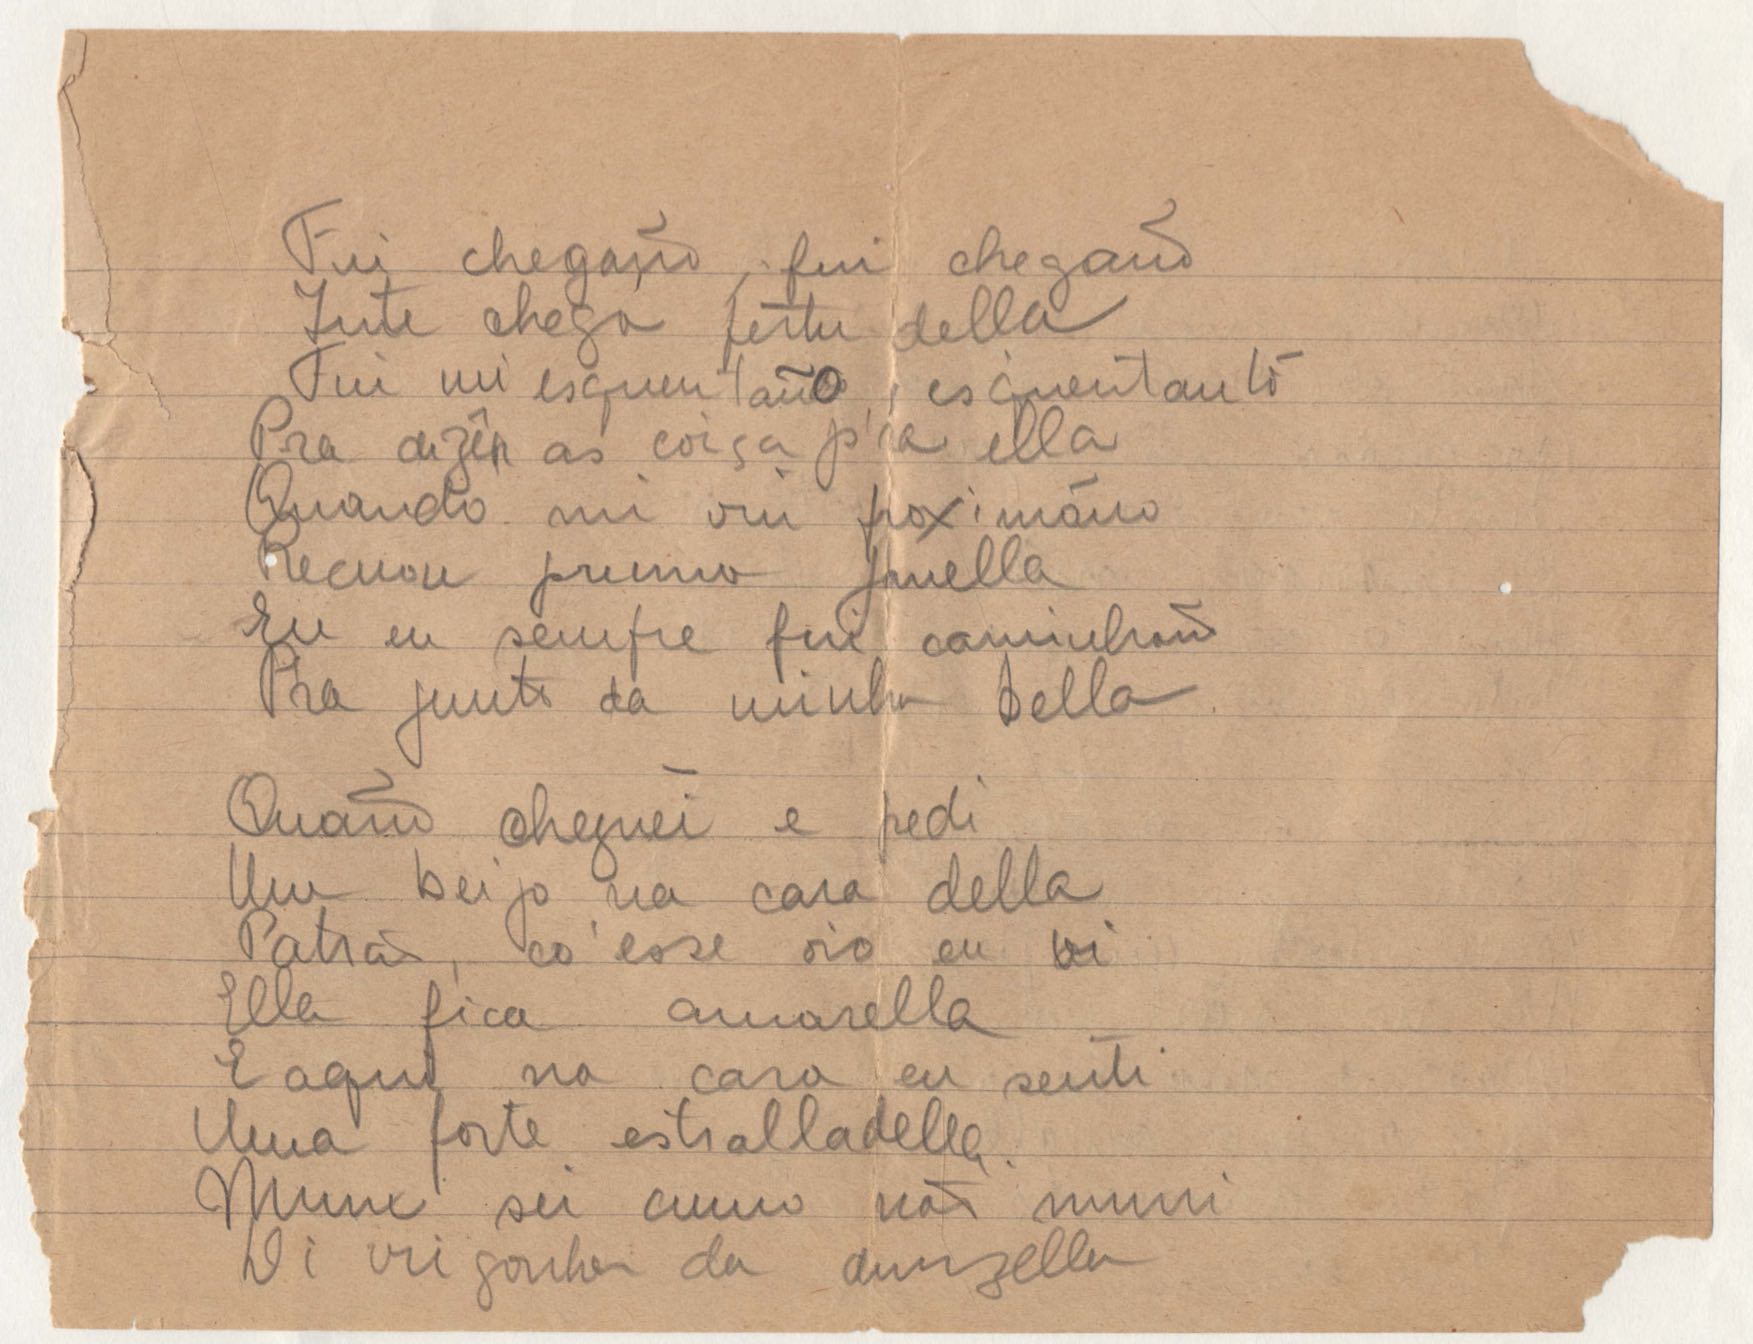 Fui chegaño, fui chegaño
Inté chegá pertu della
Fui mi esquentaño, esquentantô
Pra dizên as coisa p'ra ella
Quando mi viu proximãno
Recuou prumo janella
Eu eu sempre fui caminhaño
Pra junto da minha bella

Quaño cheguei e pedi
Um beijo na cara della
Patrão, co'esse oio eu vi
Ella fica amarella
E aqui na cara eu senti
Uma forte estralladella.
Nun sei cumo não murri
Di vrigonha da dunzella